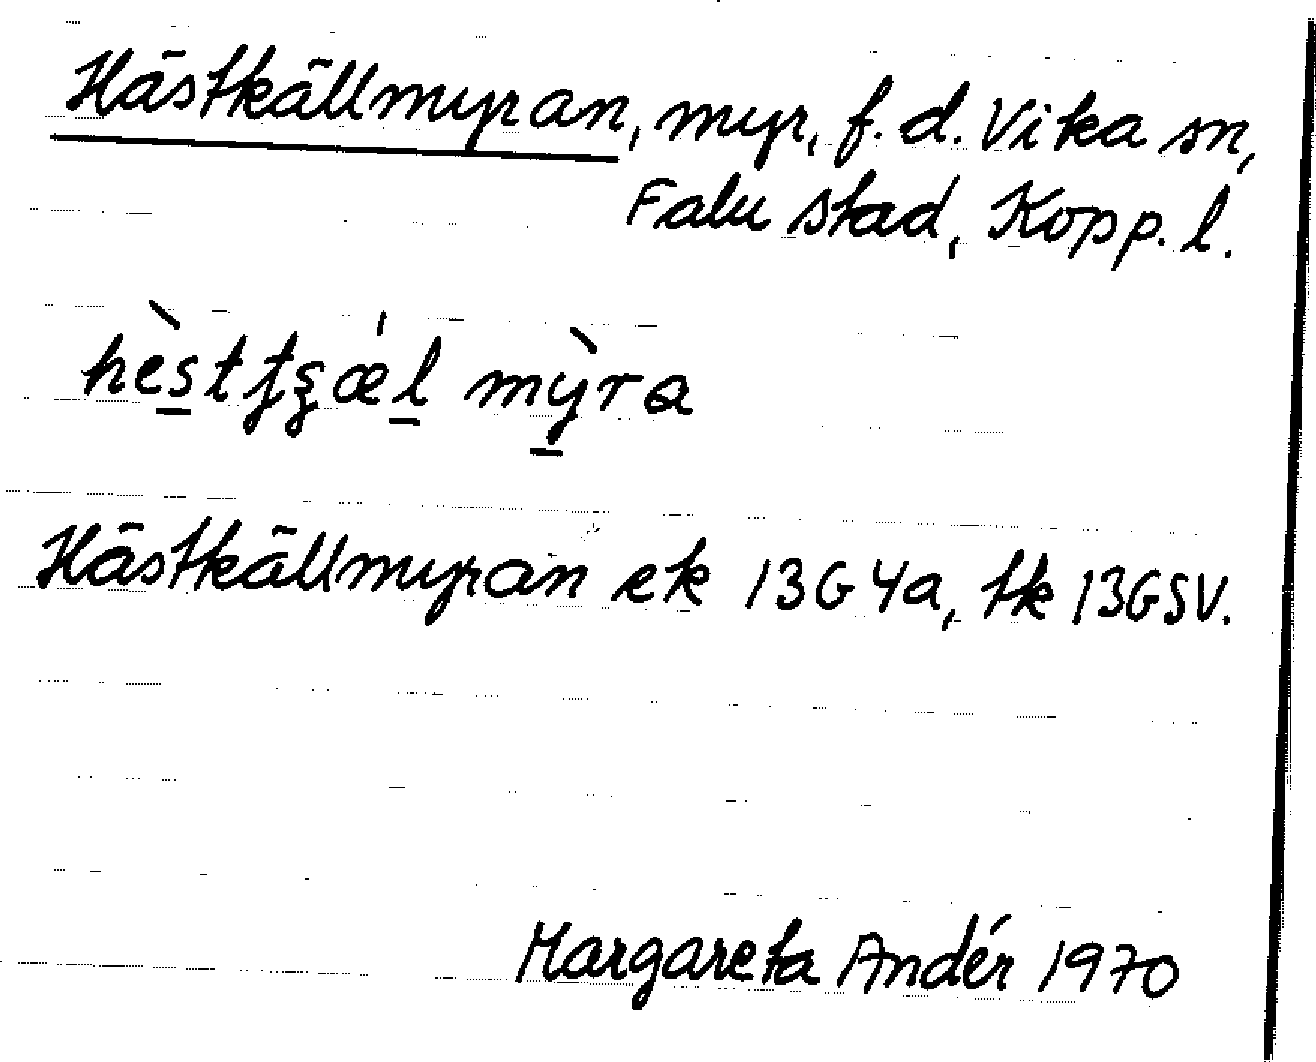 Hästkällmyran, myr, f. d. Vika sn,
Falu stad, Kopp. l.
hèstʈʂæ̀l mỳra
Hästkällmyran ek 13G4a, tk 13GSV.
Margareta Andér 1970